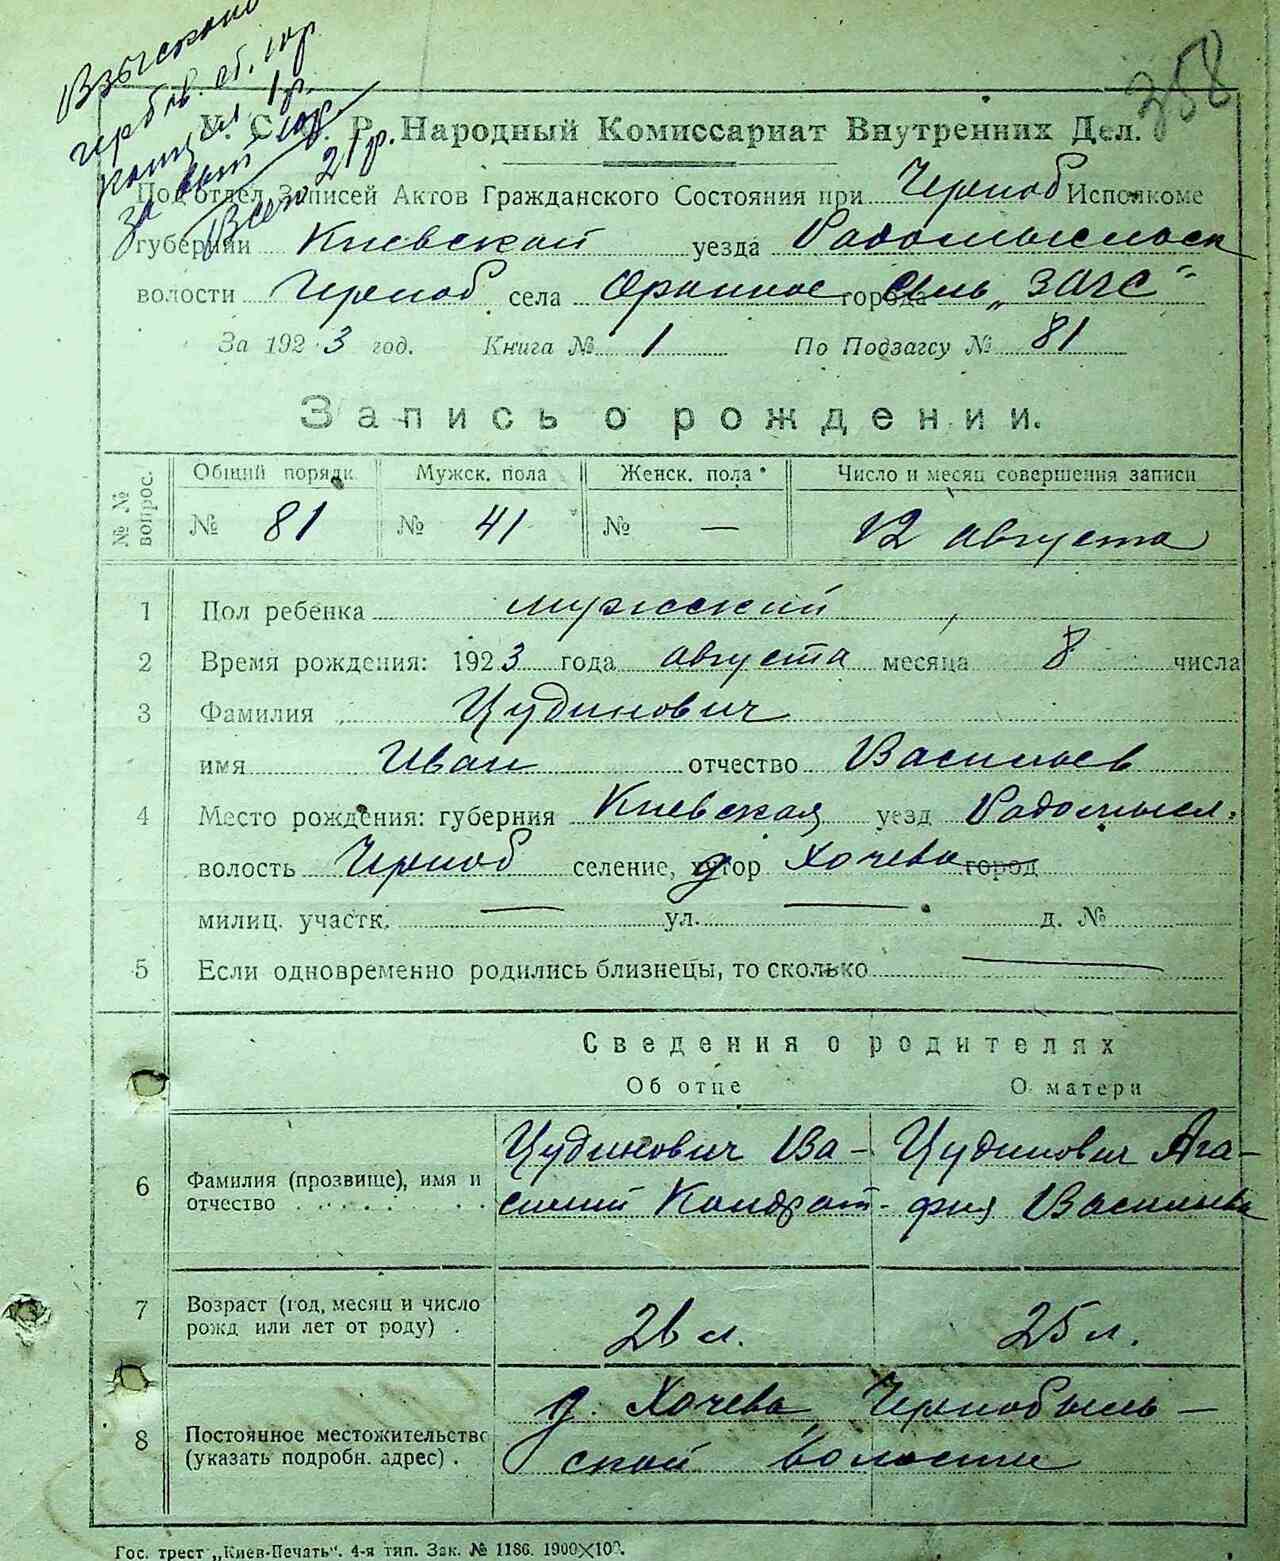 Взыскано
герб. сб. 10р.
канц. 1р.
за 10р.
Всего 21р.
358
У. С. С. Р. Народный Комиссариат Внутренних Дел.
Подотдел Записей Актов Гражданского Состояния при Черноб Исполкоме
губернии Киевской уезда Радомысльск
волости Черноб села Оранное города Сель „ЗАГС"
За 1923 год. Книга № 1 По Подзагсу № 81
Запись о рождении.
№ № вопрос. Общий порядк. Мужск. пола Женск. пола Число и месяц совершения записи
№ 81 № 41 № — 12 августа
1 Пол ребенка мужский
2 Время рождения: 1923 года августа месяца 8 числа
3 Фамилия Цудинович
имя Иван отчество Васильев
4 Место рождения: губерния Киевская уезд Радомысл.
волость Черноб селение, хутор д Хочева город
милиц. участк. — ул. — д. №
5 Если одновременно родились близнецы, то сколько —
Сведения о родителях
Об отце О матери
6 Фамилия (прозвище), имя и отчество Цудинович Ва- Цудинович Ага-
силий Кондрат- фия Васильева
7 Возраст (год, месяц и число рожд или лет от роду) 26 л. 25 л.
8 Постоянное местожительство (указать подробн. адрес). д. Хочева Чернобыль-
ской волости
Гос. трест „Киев-Печать". 4-я тип. Зак. № 1186. 1900×100.